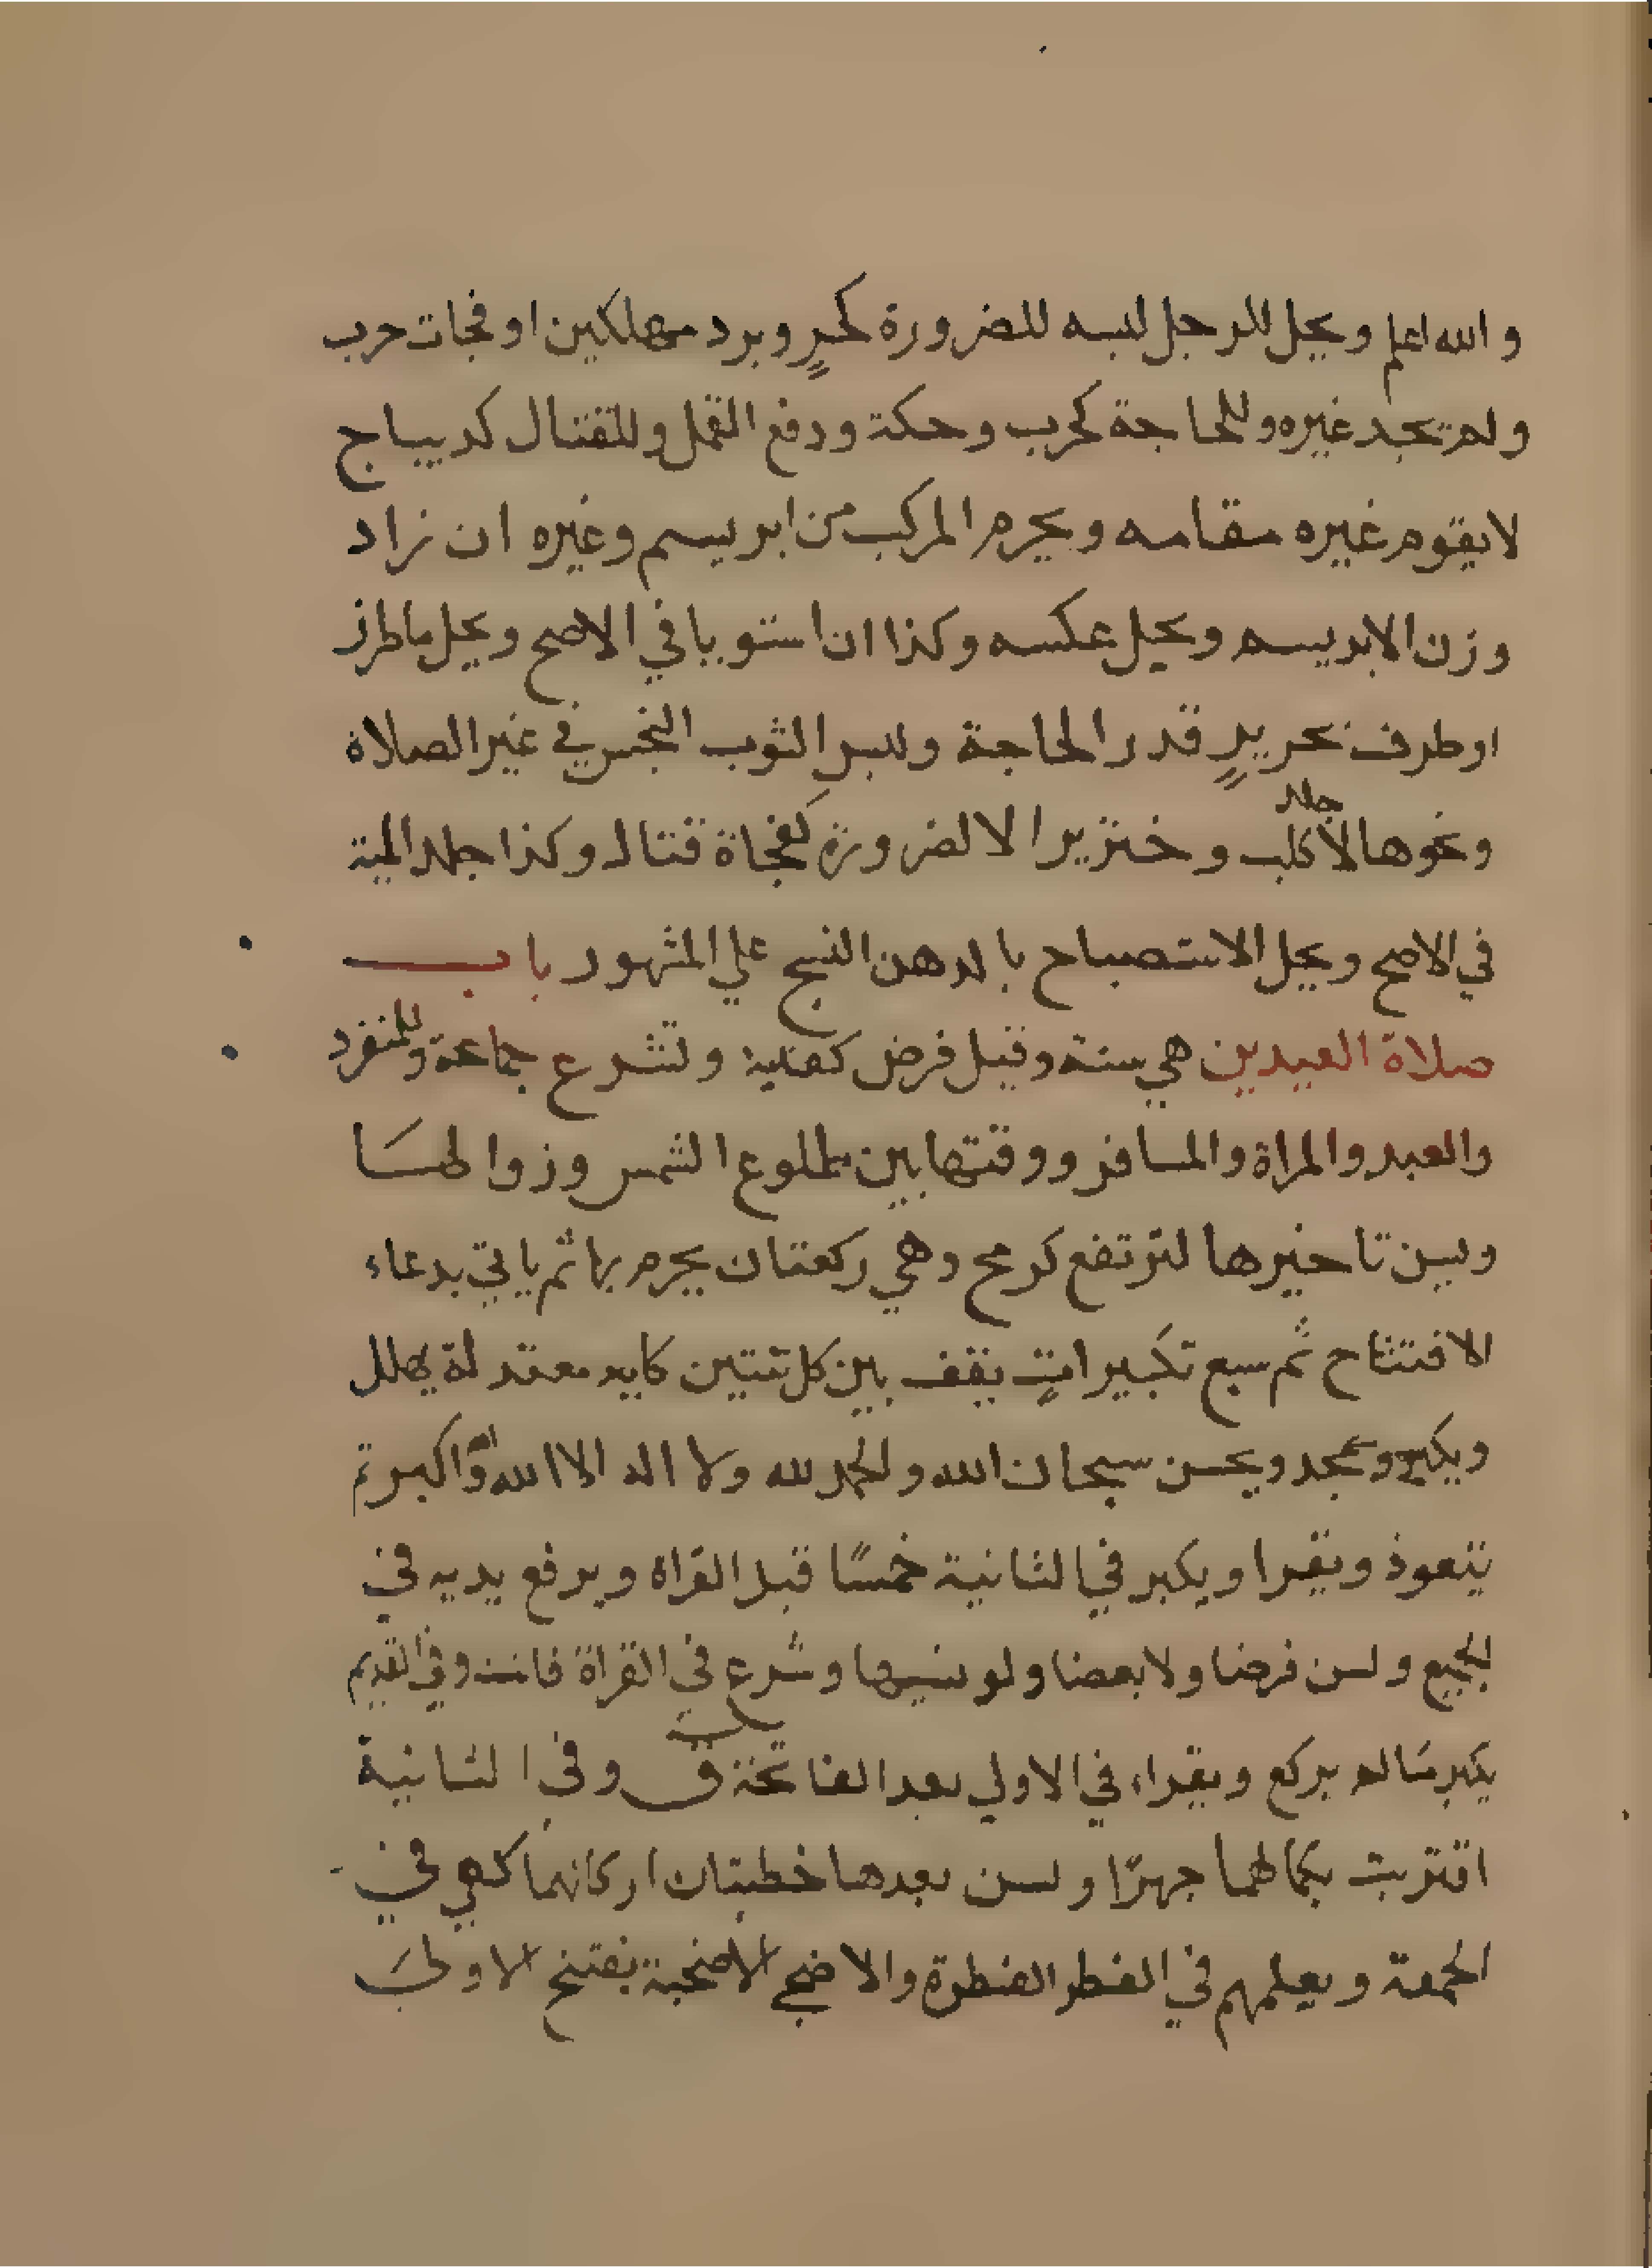 والله اعلم ويحل للرجل لبسه للضرورة كحرٍ وبرد مهلكين او فجات حرب
ولم تجد غيره وللحاجة كجرب وحكة ودفع القمل وللقتال كديباج
لايقوم غيره مقامه ويحرم المركب من ابريسم وغيره ان زاد
وزن الابريسم ويحل عكسه وكذا ان استويا في الاصح ويحل ماطرز
اوطرف بحريرٍ قدر الحاجة ولبس الثوب النجس في غير الصلاة
ونحوها لا جلد كلب وخنزير الا لضرورة كفجاة قتال وكذا جلد الميتة
في الاصح ويحل الاستصباح بالدهن النجس علي المشهور باب
صلاة العيدين هي سنة وقيل فرض كفاية وتشرع جماعة وللمنفرد
والعبد والمراة والمسافر ووقتها بين طلوع الشمس وزوالهَا
ويسن تاخيرها لترتفع كرمح وهي ركعتان يحرم بها ثم ياتي بدعاء
الافتتاح ثم سبع تكبيراتٍ يقف بين كل ثنتين كايه معتدلة يهلل
ويكبر ويمجد ويحسن سبحان الله والحمد لله ولا اله الا الله والله اكبر ثم
يتعوذ ويقرا ويكبر في الثانية خمسًا قبل القراة ويرفع يديه في
الجميع ولسن فرضا ولا بعضا ولو نسيها وشرع في القراة فاتت وفي القديم
يكبر مالم يركع ويقراء في الاولي بعد الفاتحة ق وفي الثانية
اقتربت بكمالهما جهرًا ويسن بعدها خطبتان اركانهما كهي في
الجمعة ويعلمهم في الفطر الفطرة والاضحي الاضحية يفتتح الاولىَ